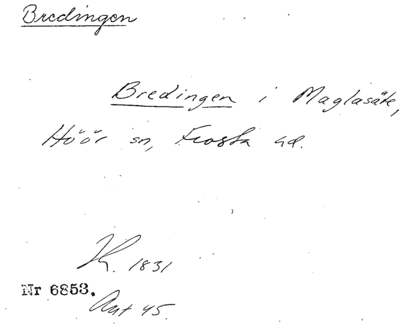 Bredingen
Bredingen i Maglasäte,
Höör sn, Frosta hd.
K. 1831
Nr 6853.
Ant 45.